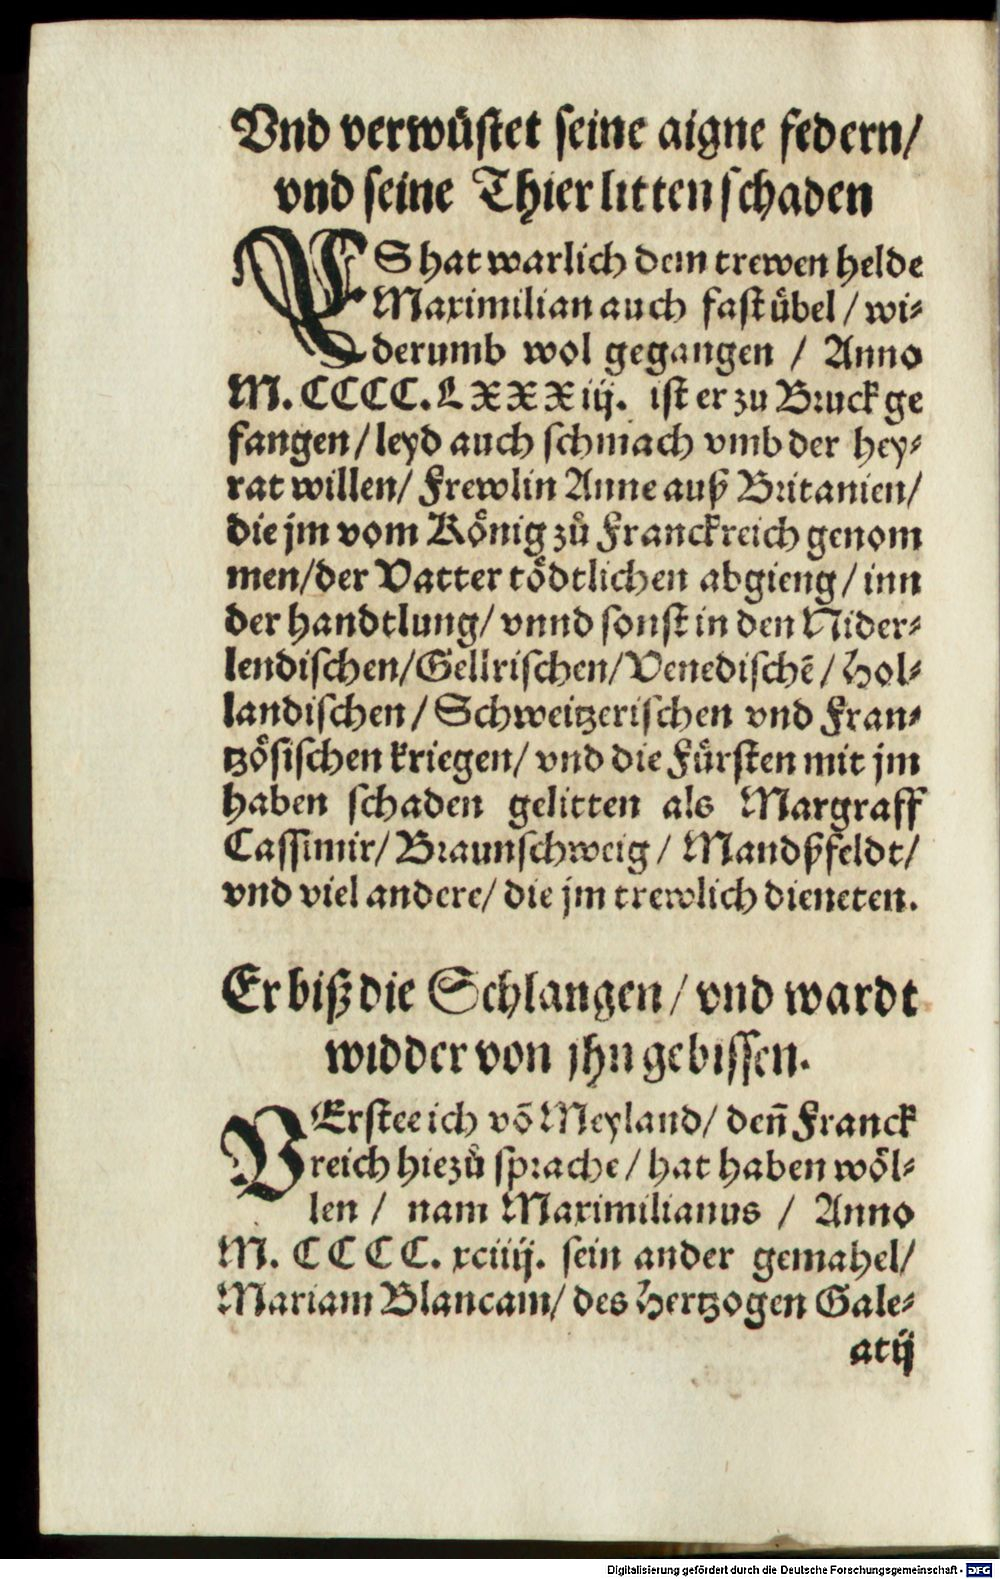 Vnd verwüstet seine aigne federn/
vnd seine Thier litten schaden
ES hat warlich dem trewen helde
Maximilian auch fast übel / wi⸗
derumb wol gegangen / Anno
M. CCCC. LXXXiij. ist er zu Bruck ge
fangen/ leyd auch schmach vmb der hey⸗
rat willen/ Frewlin Anne auß Britanien/
die jm vom König zů Franckreich genom
men/der Vatter tödtlichen abgieng/ inn
der handtlung/ vnnd sonst in den Nider⸗
lendischen/Gellrischen/Venedischē/ Hol⸗
landischen/ Schweitzerischen vnd Fran⸗
tzösischen kriegen/ vnd die Fürsten mit jm
haben schaden gelitten als Margraff
Cassimir/ Braunschweig/ Mandßfeldt/
vnd viel andere/ die jm trewlich dieneten.
Er biß die Schlangen/ vnd wardt
widder von jhn gebissen.
VErstee ich vō Meyland/ deñ Franck
reich hiezů sprache/ hat haben wöl⸗
len / nam Maximilianus / Anno
M. CCCC. xciiij. sein ander gemahel/
Mariam Blancam/ des Hertzogen Gale⸗
atij
Digitalisierung gefördert durch die Deutsche Forschungsgemeinschaft - DFG